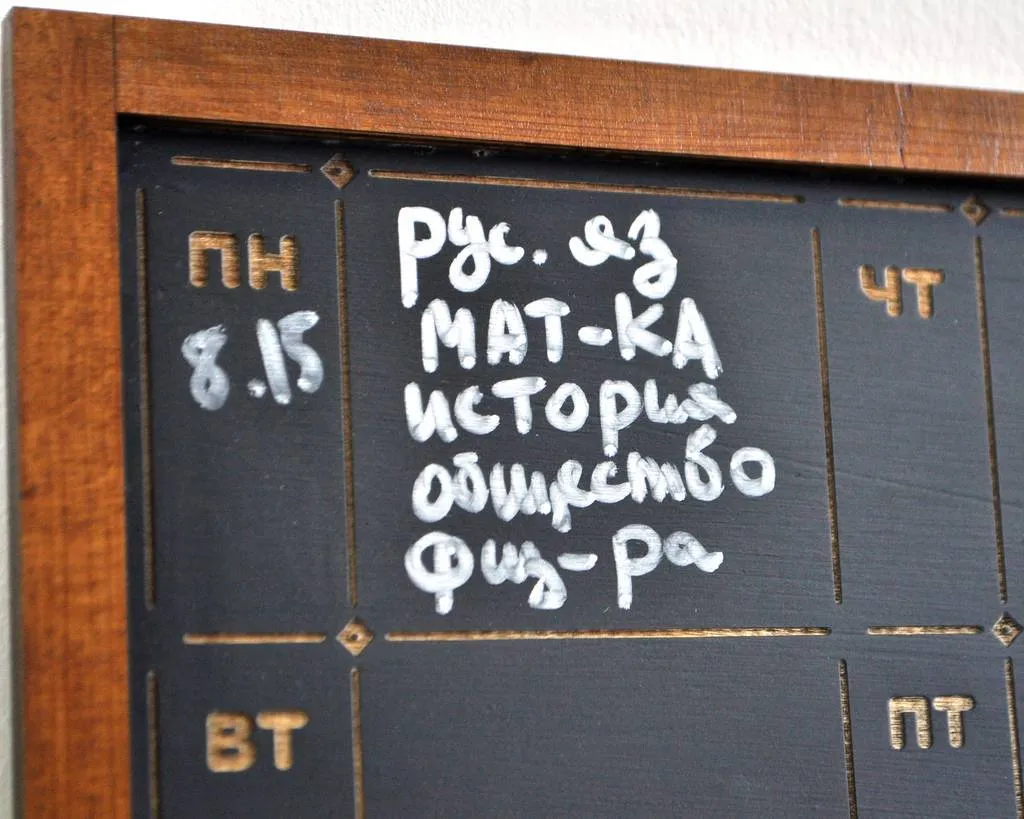 ПН
8.15
Рус. яз
МАТ-КА
история
общество
Физ-ра
ЧТ
ВТ
ПТ